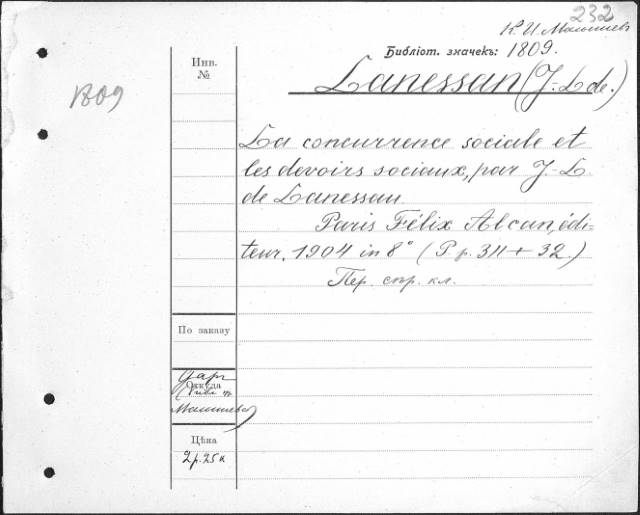 232
К. И. Малышев
Библіот. значекъ: 1809.
Инв.
№
Lanessan (J.-L. de.)
1809
La concurrence sociale et
les devoirs sociaux, par J.-L.
de Lanessan.
Paris Félix Alcan, édi=
teur. 1904 in 8° (P. p. 311 + 32.)
Пер. спр. кл.
По заказу
Даръ
Откуда
Малышева
Цѣна
2 р. 25 к